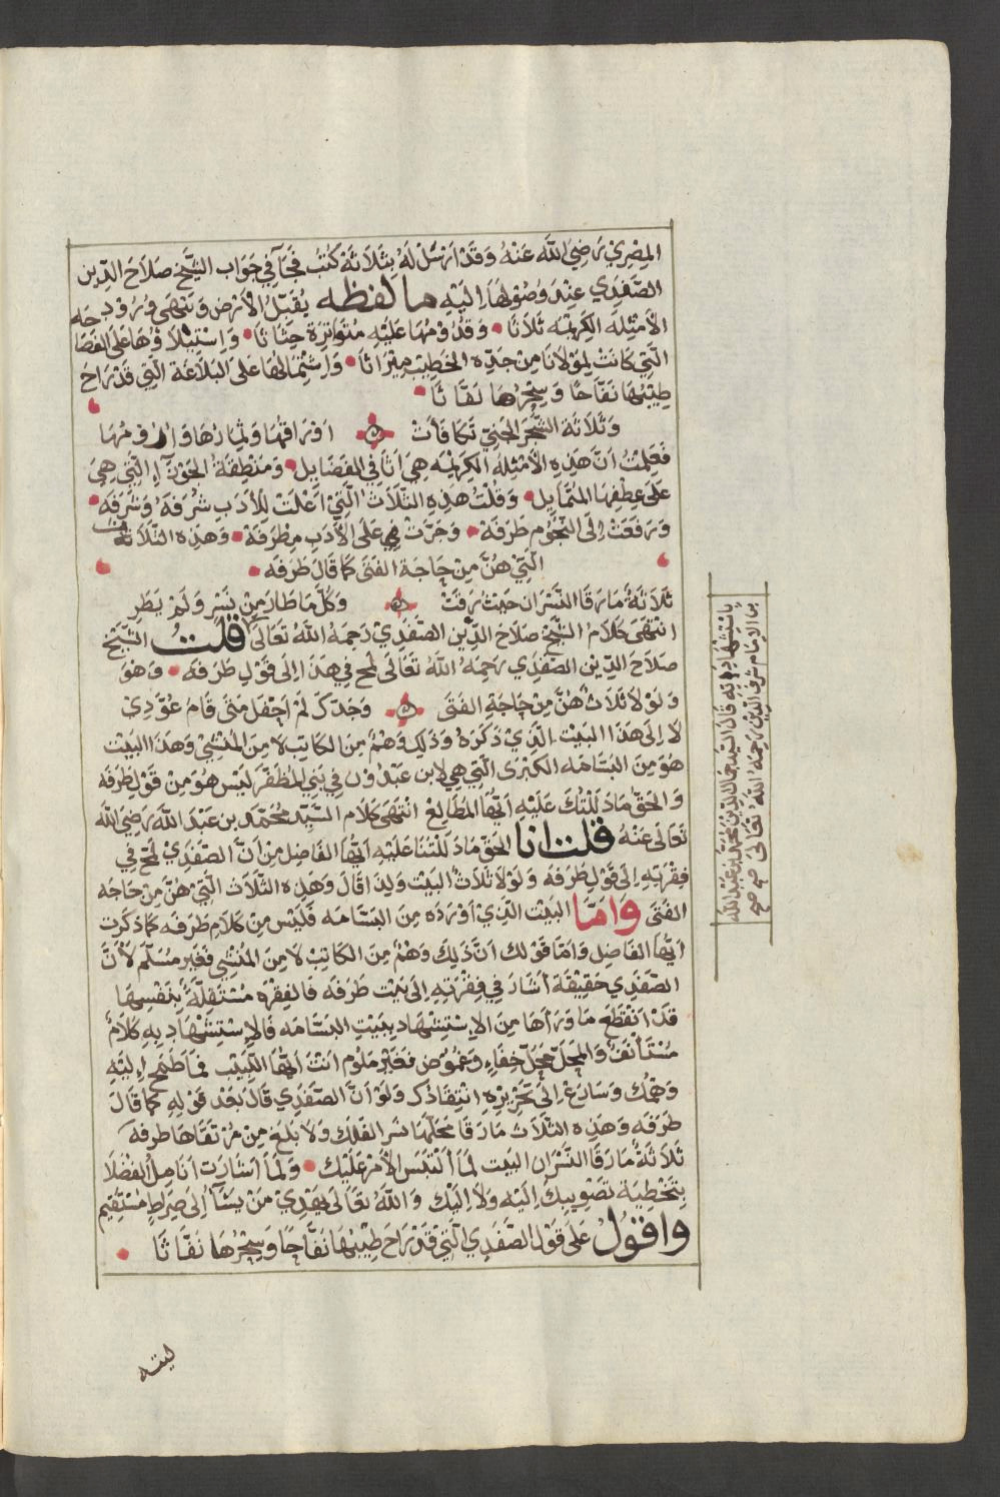 المصري رضي الله عنه وقد ارسل له بثلاثة كتب فجآ في جواب الشيخ صلاح الدين
الصفدي عند وصولها اليه ما لفظه يقبل الارض وينهى ورود
الامثله الكريمه ثلاثا وقدومها عليه متواترة حثاثا واستيلاؤها على الفصا
التي كانت لمولانا من جده الخطيب ميراثا واشتمالها على البلاغة التي قد راح
طيبها نفاحا وسحرها نفاثا
وثلاثة الشجر الجني تكافأت اوراقها وثمارها وارومها
فعلمت ان هذه الامثله الكريمه هي اثافي الفضايل ومنطقة الجوزآ التي هي
على عطفها المتمايل وقلت هذه الثلاث التي اعلت للأدب شرفه وشرفه
ورفعت الى النجوم طرفه وجرت في على الأدب مطرفه وهذه الثلاثة
التي هن من حاجة الفتى كما قال طرفه
ثلاثة ما رقا النسران حيث رقت وكل ما طار من نسر ولم يطر
انتهى كلام الشيخ صلاح الدين الصفدي رحمه الله تعالى قلت الشيخ
صلاح الدين الصفدي رحمه الله تعالى لمح في هذا الى قول طرفه وهو
ولولا ثلاث هن من حاجة الفتى وجدك لم احفل متى قام عوّدي
لا الى هذا البيت الذي ذكره وذلك وهم من الكاتب لا من المنشي وهذا البيت
هو من البسامه الكبرى التي هي لابن عبدون في بني المظفر ليس هو من قول طرفه
والحق ما دللتك عليه ايها المطالع انتهى كلام السيد محمد بن عبد الله رضي الله
تعالى عنه قلت انا الحق ما دللتنا عليه ايها الفاضل من أن الصفدي لمح في
فقرته الى قول طرفه ولولا ثلاث البيت ولذا قال وهذه الثلاث التي هن من حاجه
الفتى واما البيت الذي اورده من البسامه فليس من كلام طرفه كما ذكرت
ايها الفاضل واما قولك ان ذلك وهم من الكاتب لا من المنشي فغير مسلم لأن
الصفدي حقيقة أشار في فقرته الى بيت طرفه فالفقره مستقلة بنفسها
قد انقطع ما ورآها من الاستشهاد ببيت البسامه فالاستشهاد به كلام
مستأنف والمحل محل خفاء وغموض فغير ملوم انت ايها اللبيب فما طمح اليه
وهمك وسارع الى تحريره انتقاذك ولو ان الصفدي قال بعد قوله كما قال
طرفه وهذه الثلاث ما رقا محلها نسر الفلك ولا بلغ من مرتقاها طرفه
ثلاثة ما رقا النسران البيت لما التبس الأمر عليك ولما اشارت انامل الفضلا
بتخطية تصويبك اليه ولا اليك والله تعالى يهدي من يشآ الى صراط مستقيم
واقول على قول الصفدي التي قد راح طيبها نفاحا وسحرها نفاثا
باستشهاده به قال السيد جمال الدين محمد بن عبد الله
بن الامام شرف الدين رحمه الله تعالى صح صح
ليته